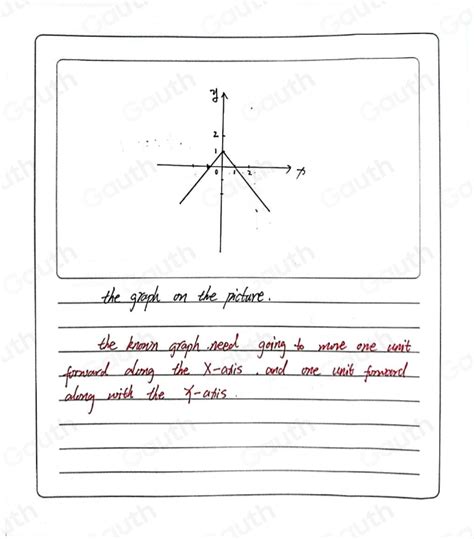 y
2
1
0 1 2 x
the graph on the picture.
the known graph need going to move one unit
forward along the X-axis. and one unit forward
along with the Y-axis.
Gauth